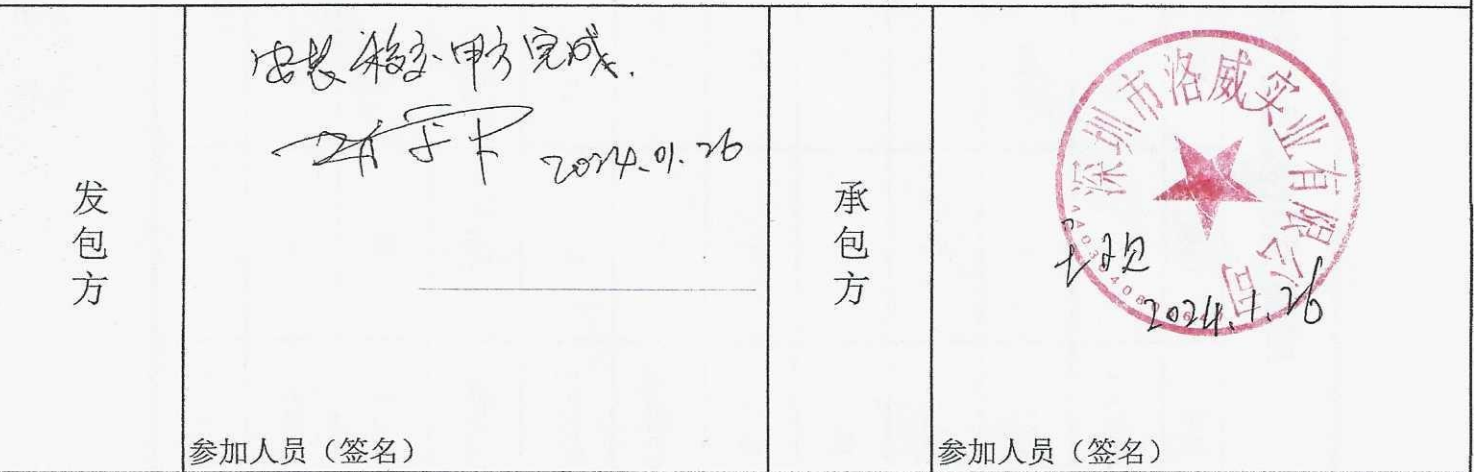 发包方
安装移交甲方完成.
2024.01.26
参加人员（签名）
承包方
深圳市洛威实业有限公司
2024.1.26
参加人员（签名）